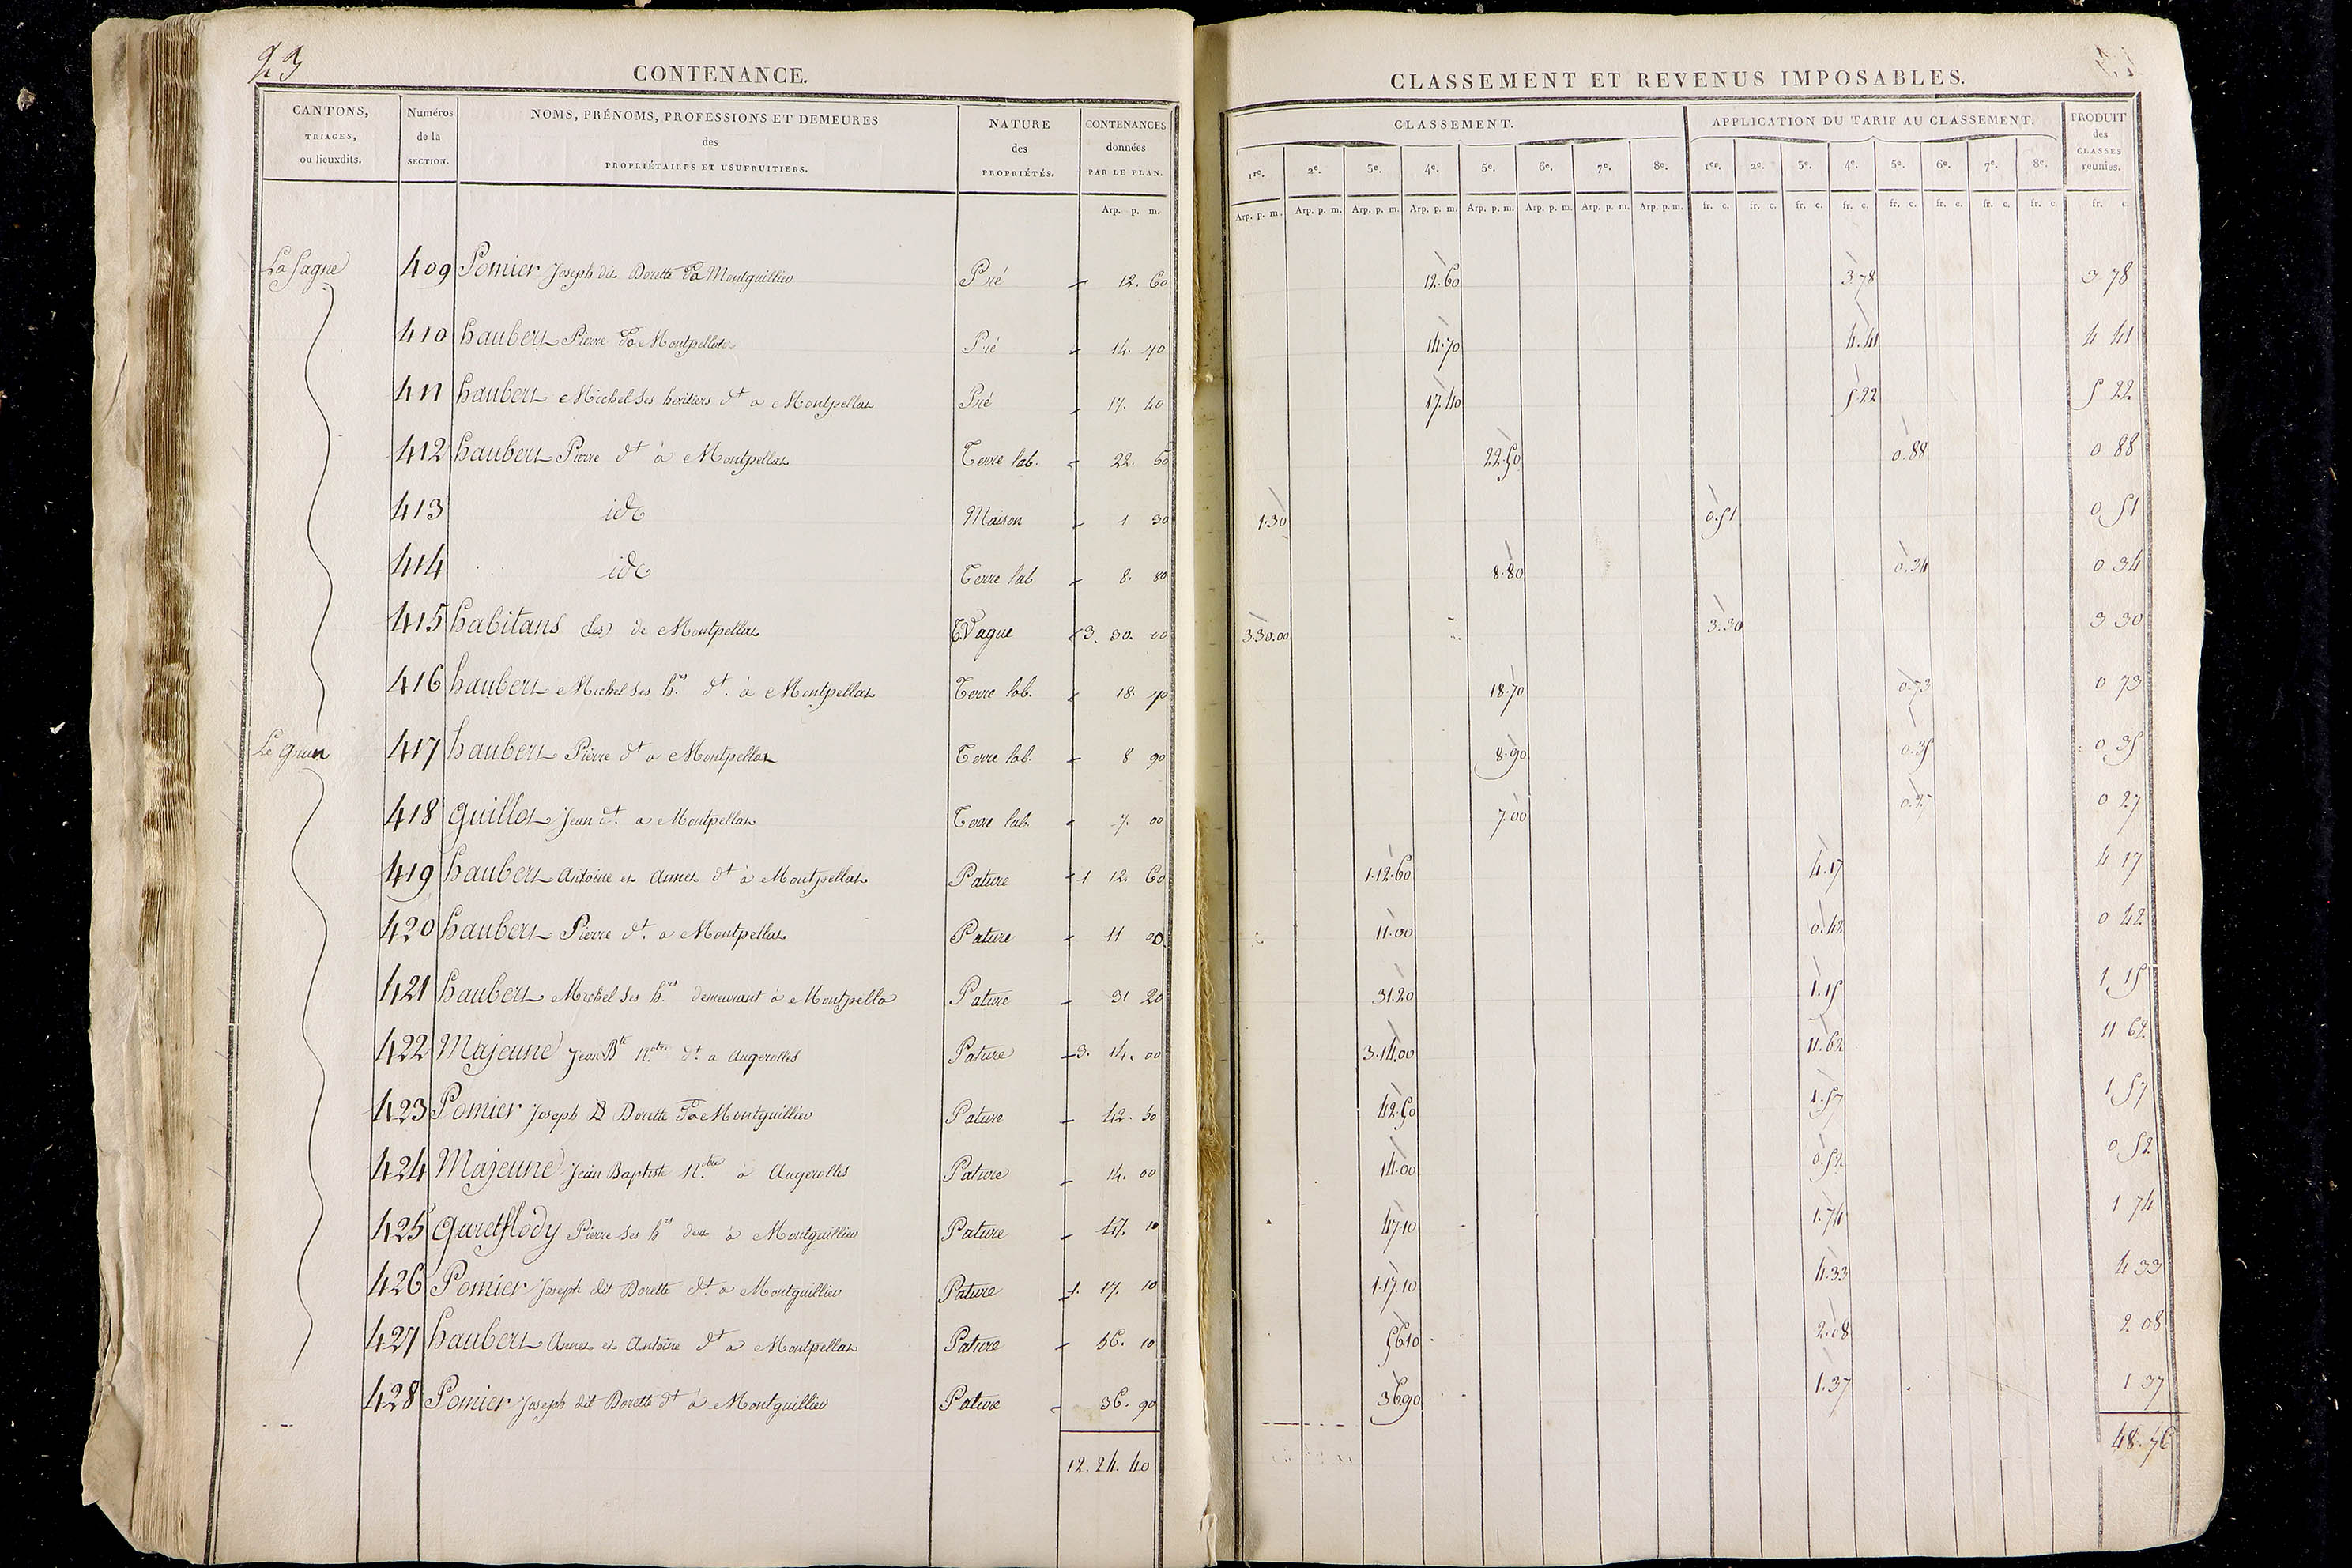 23
CONTENANCE.
CANTONS, TRIAGES, ou lieuxdits.
Numéros de la SECTION.
NOMS, PRÉNOMS, PROFESSIONS ET DEMEURES des PROPRIÉTAIRES ET USUFRUITIERS.
NATURE des PROPRIÉTÉS.
CONTENANCES données PAR LE PLAN.
Arp. p. m.
La Sagne 409 Pomier Joseph dit Dorette à Montguillier Pré 12. 60
410 haubert Pierre à Montpellat Pré 14. 70
411 haubert Michel ses heritiers dt a Montpellat Pré 17. 40
412 haubert Pierre dt à Montpellat Terre lab. 22. 50
413 id Maison 1 30
414 id Terre lab 8. 80
415 habitans (les) de Montpellat T. Vague 3. 30. 00
416 haubert Michel ses hrs dt. à Montpellat Terre lab. 18. 70
417 haubert Pierre dt a Montpellat Terre lab. 8 90
418 Guillot Jean dt. a Montpellat Terre lab. 7. 00
419 haubert Antoine et Annet dt à Montpellat Pature 1 12. 60
420 haubert Pierre dt. a Montpellat Pature 11 00
421 haubert Michel ses hrs demeurant à Montpella Pature 31 20
422 Majeune Jean Bte Ntre dt a Augerolles Pature 3. 14. 00
423 Pomier Joseph D Dorette à Montguillier Pature 42. 50
424 Majeune Jean Baptiste Ntre a Augerolles Pature 14. 00
425 Pierre ses hrs dem à Montguillier Pature 47. 10
426 Pomier Joseph dit Dorette dt. a Montguillier Pature 1. 17. 10
427 haubert Annet et Antoine dt a Montpellat Pature 56. 10
428 Pomier Joseph dit Dorette dt à Montguillier Pature 36. 90
12. 24. 40
CLASSEMENT ET REVENUS IMPOSABLES.
CLASSEMENT.
APPLICATION DU TARIF AU CLASSEMENT.
PRODUIT des CLASSES reunies.
1re. 2e. 3e. 4e. 5e. 6e. 7e. 8e. 1re. 2e. 3e. 4e. 5e. 6e. 7e. 8e.
Arp. p. m. Arp. p. m. Arp. p. m. Arp. p. m. Arp. p. m. Arp. p. m. Arp. p. m. Arp. p. m. fr. c. fr. c. fr. c. fr. c. fr. c. fr. c. fr. c. fr. c. fr. c.
12.60 3.78 3 78
14.70 4.41 4 41
17.40 5.22 5 22
22.50 0.88 0 88
1.30 0.51 0 51
8.80 0.34 0 34
3.30.00 3.30 3 30
18.70 0.73 0 73
8.90 0.35 0 35
7.00 0.27 0 27
1.12.60 4.17 4 17
11.00 0.42 0 42
31.20 1.15 1 15
3.14.00 11.62 11 62
42.50 1.57 1 57
14.00 0.52 0 52
47.10 1.74 1 74
1.17.10 4.33 4 33
56.10 2.08 2 08
36.90 1.37 1 37
48.76